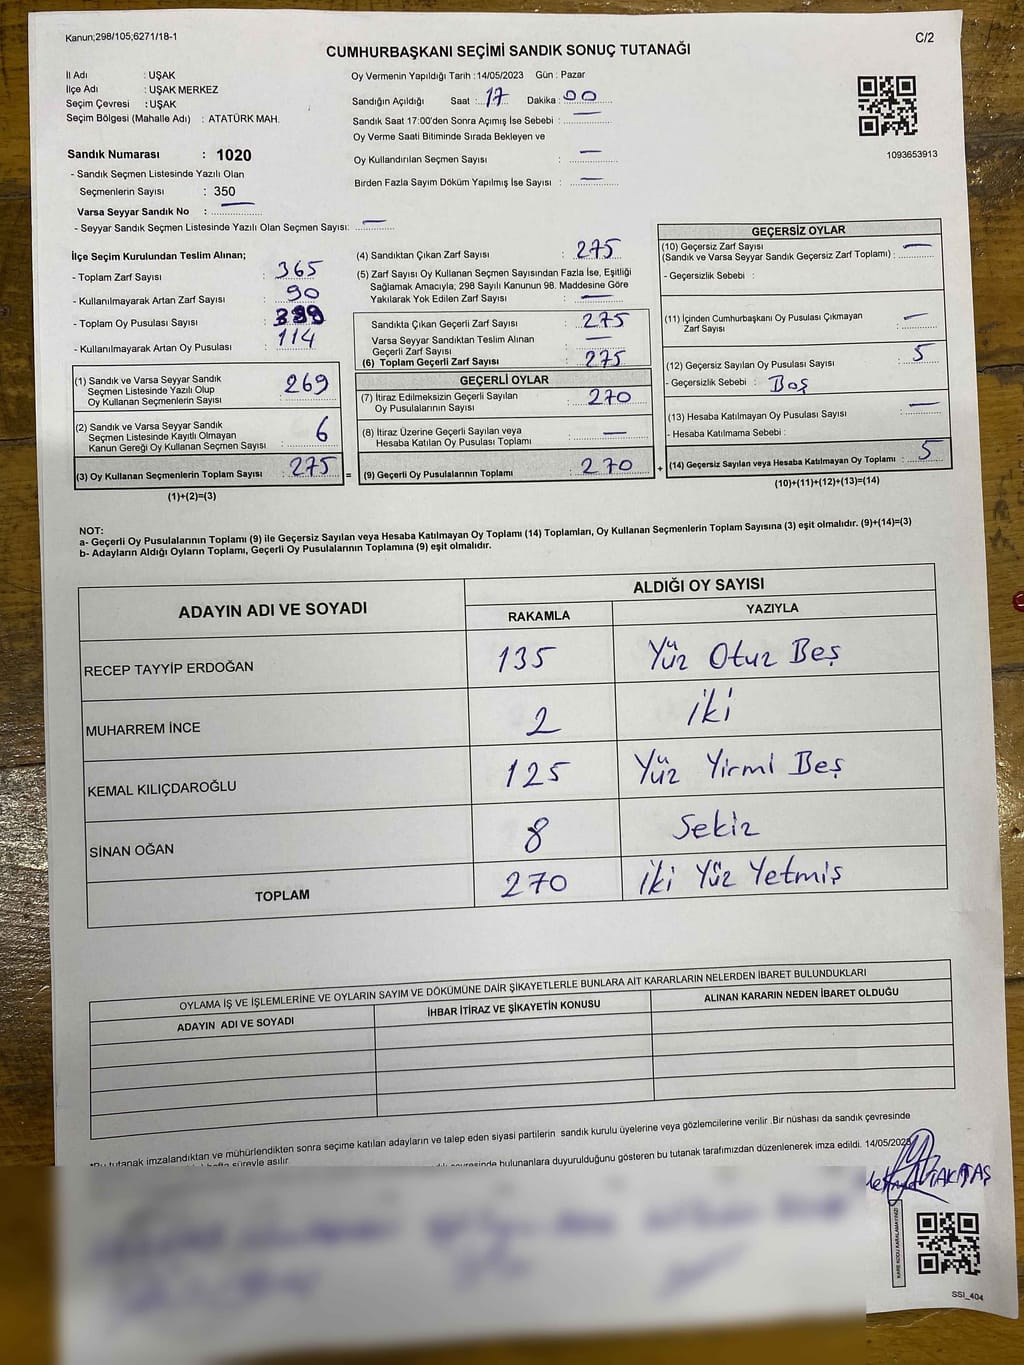 Kanun;298/105,6271/18-1
C/2
CUMHURBAŞKANI SEÇİMİ SANDIK SONUÇ TUTANAĞI
İl Adı : UŞAK
İlçe Adı : UŞAK MERKEZ
Seçim Çevresi : UŞAK
Seçim Bölgesi (Mahalle Adı) : ATATÜRK MAH.
Oy Vermenin Yapıldığı Tarih : 14/05/2023 Gün : Pazar
Sandığın Açıldığı Saat : 17 Dakika : 00
Sandık Saat 17:00'den Sonra Açımış İse Sebebi : —
Oy Verme Saati Bitiminde Sırada Bekleyen ve
Oy Kullandırılan Seçmen Sayısı : —
Birden Fazla Sayım Döküm Yapılmış İse Sayısı : —
1093653913
Sandık Numarası : 1020
- Sandık Seçmen Listesinde Yazılı Olan
Seçmenlerin Sayısı : 350
Varsa Seyyar Sandık No : —
- Seyyar Sandık Seçmen Listesinde Yazılı Olan Seçmen Sayısı: —
İlçe Seçim Kurulundan Teslim Alınan;
- Toplam Zarf Sayısı : 365
- Kullanılmayarak Artan Zarf Sayısı : 90
- Toplam Oy Pusulası Sayısı :
- Kullanılmayarak Artan Oy Pusulası : 114
(1) Sandık ve Varsa Seyyar Sandık
Seçmen Listesinde Yazılı Olup
Oy Kullanan Seçmenlerin Sayısı : 269
(2) Sandık ve Varsa Seyyar Sandık
Seçmen Listesinde Kayıtlı Olmayan
Kanun Gereği Oy Kullanan Seçmen Sayısı : 6
(3) Oy Kullanan Seçmenlerin Toplam Sayısı : 275 =
(1)+(2)=(3)
(4) Sandıktan Çıkan Zarf Sayısı : 275
(5) Zarf Sayısı Oy Kullanan Seçmen Sayısından Fazla İse, Eşitliği
Sağlamak Amacıyla; 298 Sayılı Kanunun 98. Maddesine Göre
Yakılarak Yok Edilen Zarf Sayısı : —
Sandıkta Çıkan Geçerli Zarf Sayısı : 275
Varsa Seyyar Sandıktan Teslim Alınan
Geçerli Zarf Sayısı : —
(6) Toplam Geçerli Zarf Sayısı : 275
GEÇERLİ OYLAR
(7) İtiraz Edilmeksizin Geçerli Sayılan
Oy Pusulalarının Sayısı : 270
(8) İtiraz Üzerine Geçerli Sayılan veya
Hesaba Katılan Oy Pusulası Toplamı : —
(9) Geçerli Oy Pusulalarının Toplamı : 270 +
GEÇERSİZ OYLAR
(10) Geçersiz Zarf Sayısı
(Sandık ve Varsa Seyyar Sandık Geçersiz Zarf Toplamı) : —
- Geçersizlik Sebebi :
(11) İçinden Cumhurbaşkanı Oy Pusulası Çıkmayan
Zarf Sayısı : —
(12) Geçersiz Sayılan Oy Pusulası Sayısı : 5
- Geçersizlik Sebebi : Boş
(13) Hesaba Katılmayan Oy Pusulası Sayısı : —
- Hesaba Katılmama Sebebi :
(14) Geçersiz Sayılan veya Hesaba Katılmayan Oy Toplamı : 5
(10)+(11)+(12)+(13)=(14)
NOT:
a- Geçerli Oy Pusulalarının Toplamı (9) ile Geçersiz Sayılan veya Hesaba Katılmayan Oy Toplamı (14) Toplamları, Oy Kullanan Seçmenlerin Toplam Sayısına (3) eşit olmalıdır. (9)+(14)=(3)
b- Adayların Aldığı Oyların Toplamı, Geçerli Oy Pusulalarının Toplamına (9) eşit olmalıdır.
ADAYIN ADI VE SOYADI ALDIĞI OY SAYISI
RAKAMLA YAZIYLA
RECEP TAYYİP ERDOĞAN 135 Yüz Otuz Beş
MUHARREM İNCE 2 iki
KEMAL KILIÇDAROĞLU 125 Yüz Yirmi Beş
SİNAN OĞAN 8 Sekiz
TOPLAM 270 iki Yüz Yetmiş
OYLAMA İŞ VE İŞLEMLERİNE VE OYLARIN SAYIM VE DÖKÜMÜNE DAİR ŞİKAYETLERLE BUNLARA AİT KARARLARIN NELERDEN İBARET BULUNDUKLARI
ADAYIN ADI VE SOYADI İHBAR İTİRAZ VE ŞİKAYETİN KONUSU ALINAN KARARIN NEDEN İBARET OLDUĞU
*Bu tutanak imzalandıktan ve mühürlendikten sonra seçime katılan adayların ve talep eden siyasi partilerin sandık kurulu üyelerine veya gözlemcilerine verilir .Bir nüshası da sandık çevresinde
hafta süreyle asılır. çevresinde bulunanlara duyurulduğunu gösteren bu tutanak tarafımızdan düzenlenerek imza edildi. 14/05/2023
KARE KODU KARALAMAYINIZ!
SSI_404